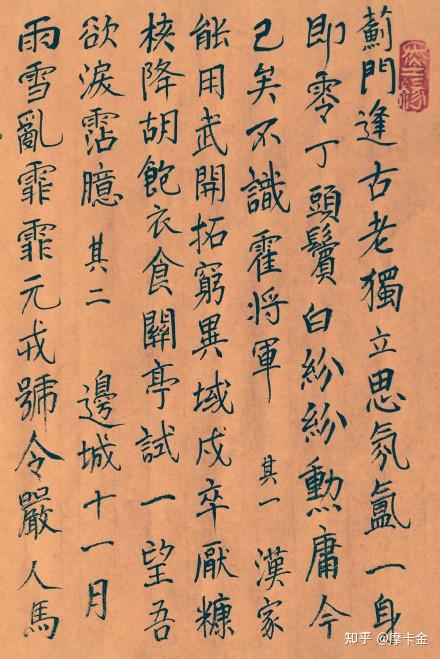 薊門逢古老獨立思氛氳一身
即零丁頭鬢白紛紛勲庸今
已矣不識霍将軍 其一 漢家
能用武開拓窮異域戍卒厭糠
核降胡飽衣食關亭試一望吾
欲淚霑臆 其二 邊城十一月
雨雪亂霏霏元戎號令嚴人馬
知乎 @摩卡金